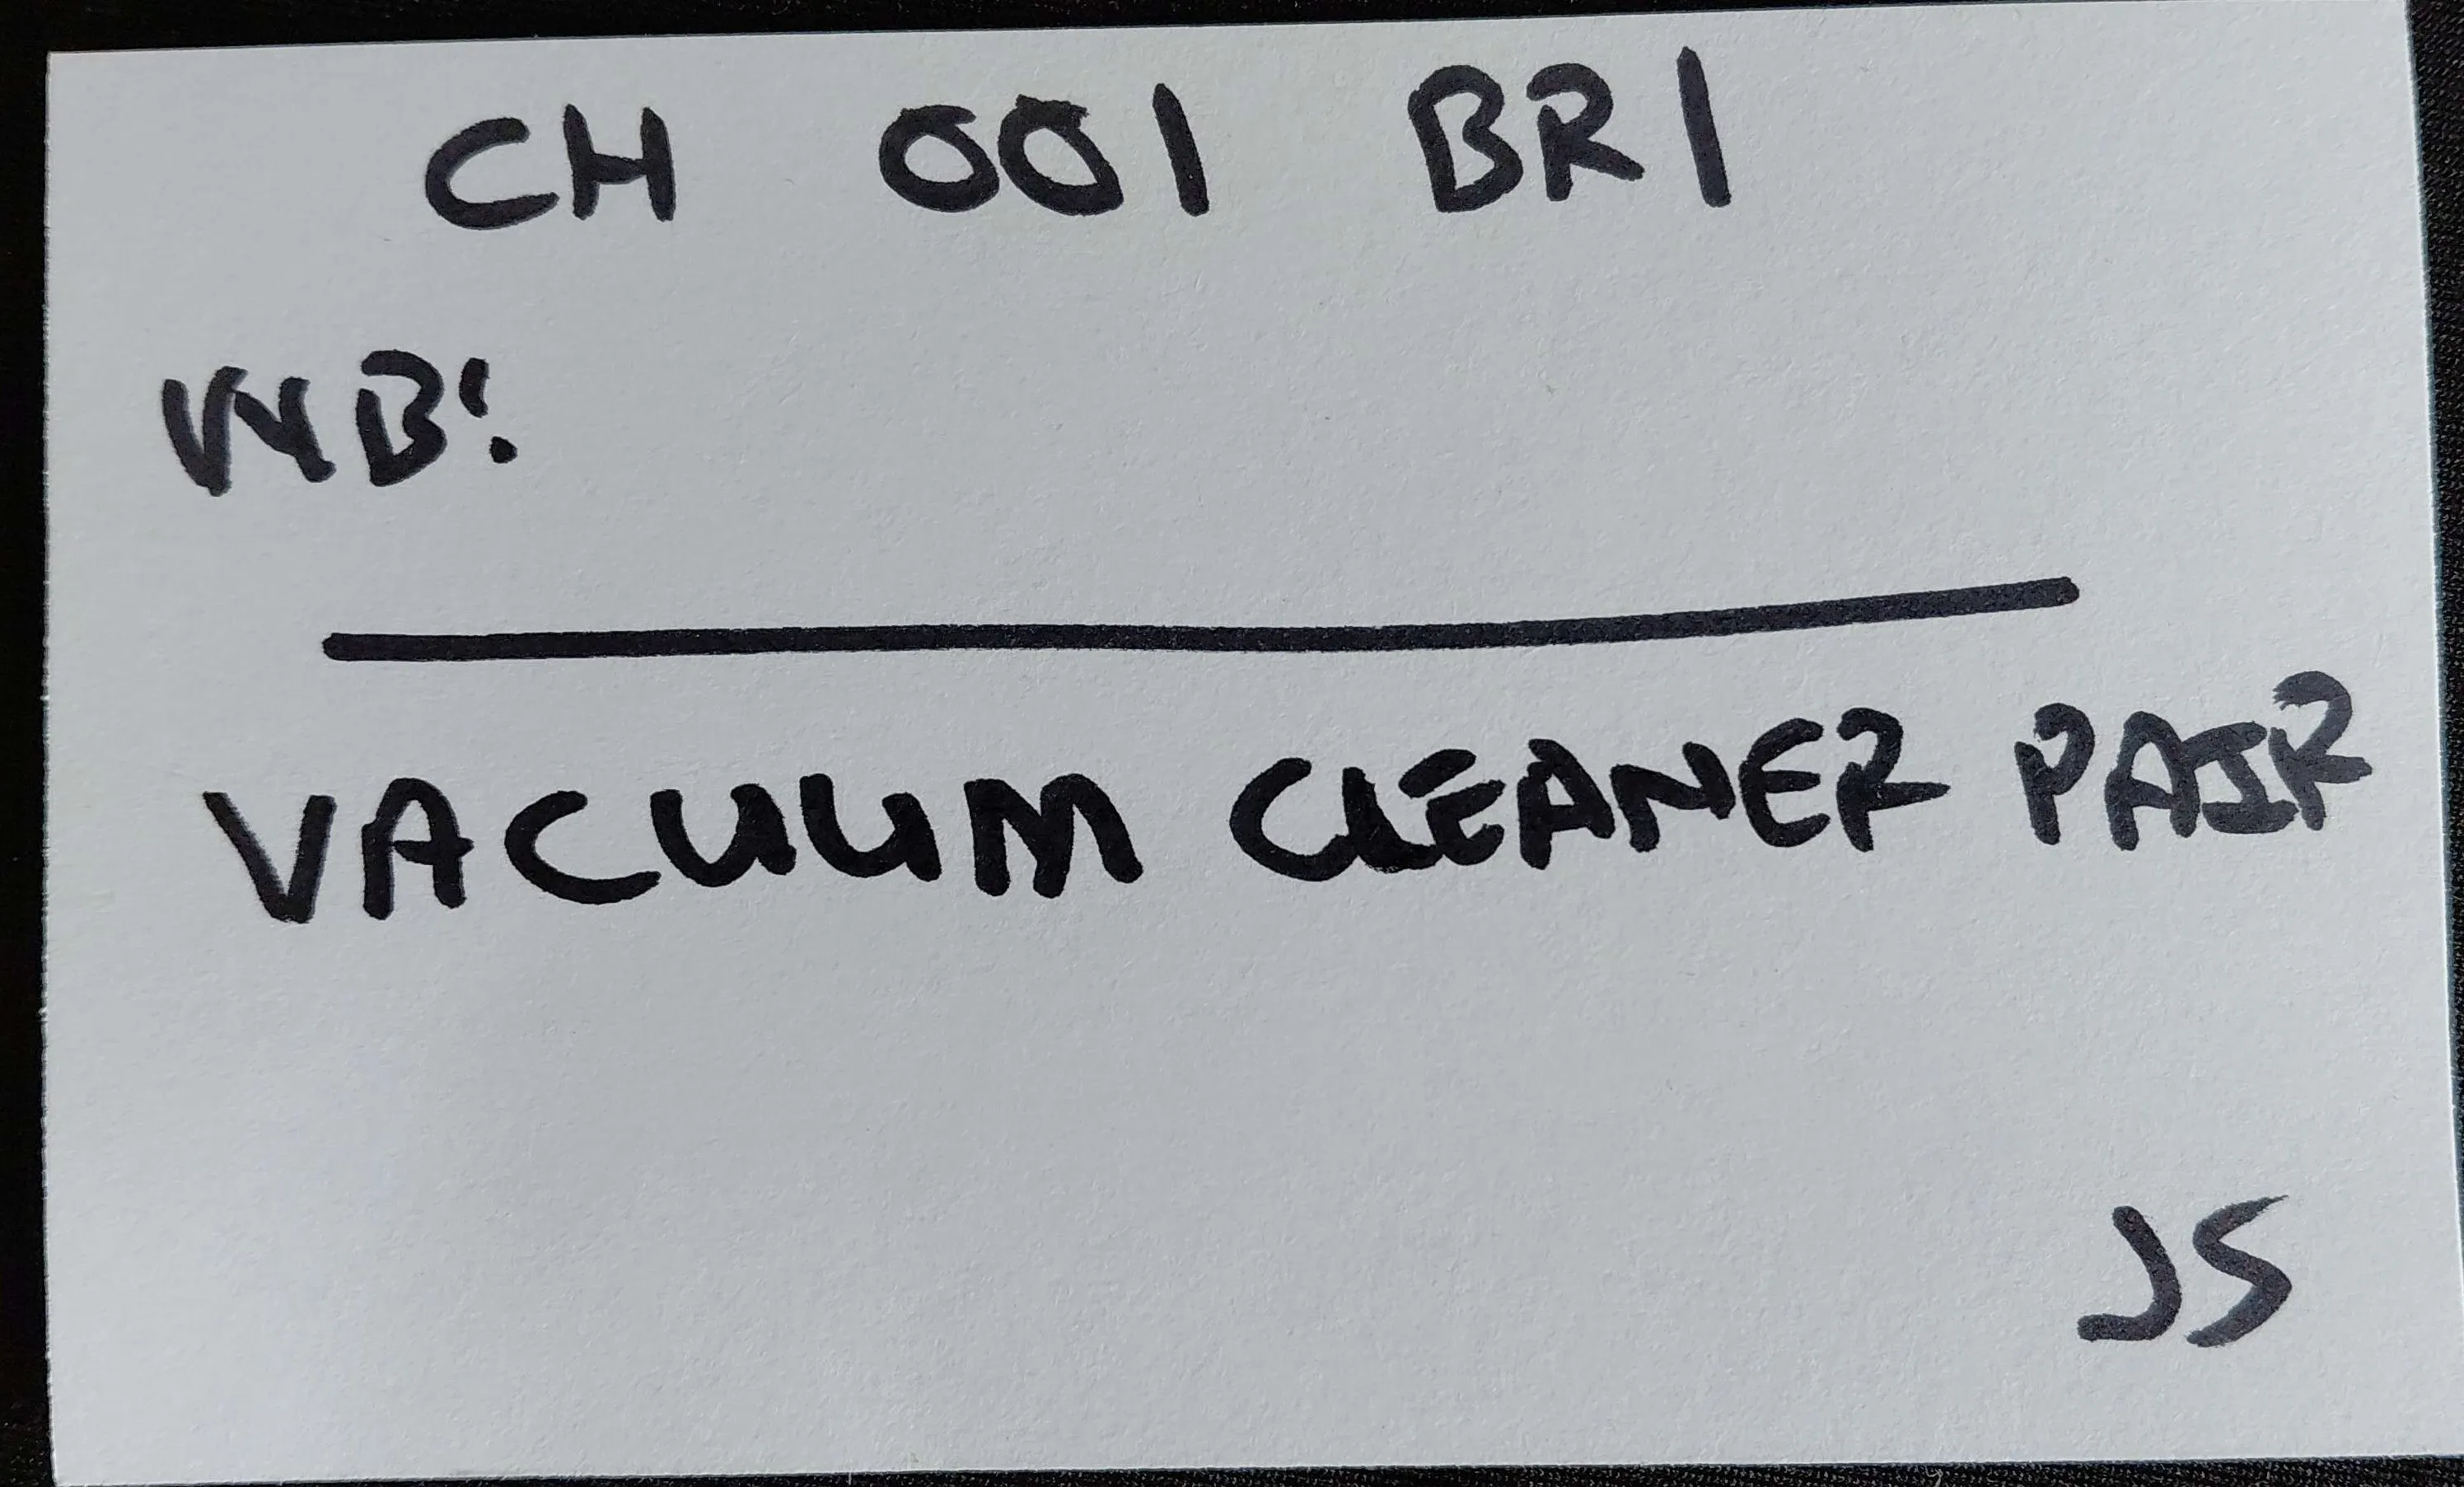 CH 001 BR1
WB:
VACUUM CLEANER PAIR
JS